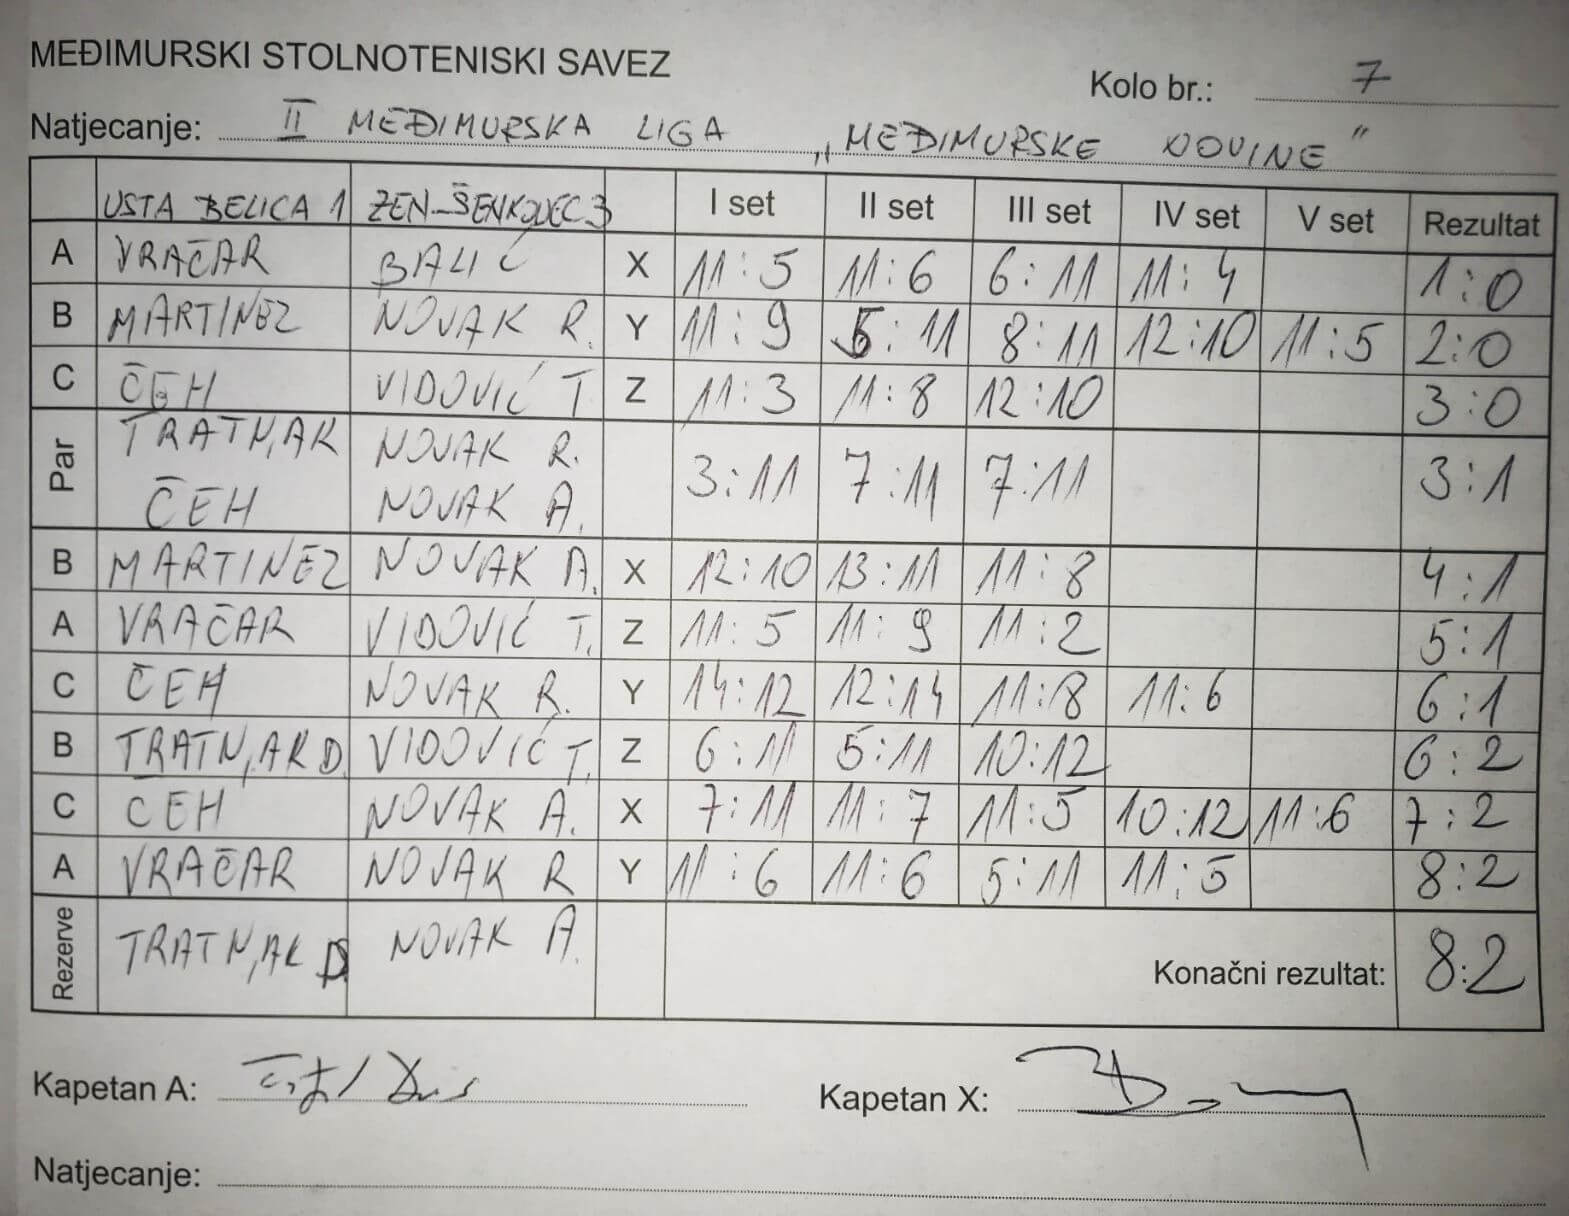 MEĐIMURSKI STOLNOTENISKI SAVEZ
Kolo br.: 7
Natjecanje: II MEĐIMURSKA LIGA „MEĐIMURSKE NOVINE"
USTA BELICA 1 ZEN-ŠENKOVEC 3 I set II set III set IV set V set Rezultat
A VRAČAR BALIĆ X 11:5 11:6 6:11 11:4 1:0
B MARTINEZ NOVAK R. Y 11:9 5:11 8:11 12:10 11:5 2:0
C ČEH VIDOVIĆ T Z 11:3 11:8 12:10 3:0
Par TRATNJAK NOVAK R. 3:11 7:11 7:11 3:1
ČEH NOVAK A.
B MARTINEZ NOVAK A. X 12:10 13:11 11:8 4:1
A VRAČAR VIDOVIĆ T. Z 11:5 11:9 11:2 5:1
C ČEH NOVAK R. Y 14:12 12:14 11:8 11:6 6:1
B TRATNJAK D. VIDOVIĆ T. Z 6:11 5:11 10:12 6:2
C ČEH NOVAK A. X 7:11 11:7 11:5 10:12 11:6 7:2
A VRAČAR NOVAK R Y 11:6 11:6 5:11 11:5 8:2
Rezerve TRATNJAK D. NOVAK A. Konačni rezultat: 8:2
Kapetan A:
Kapetan X:
Natjecanje: